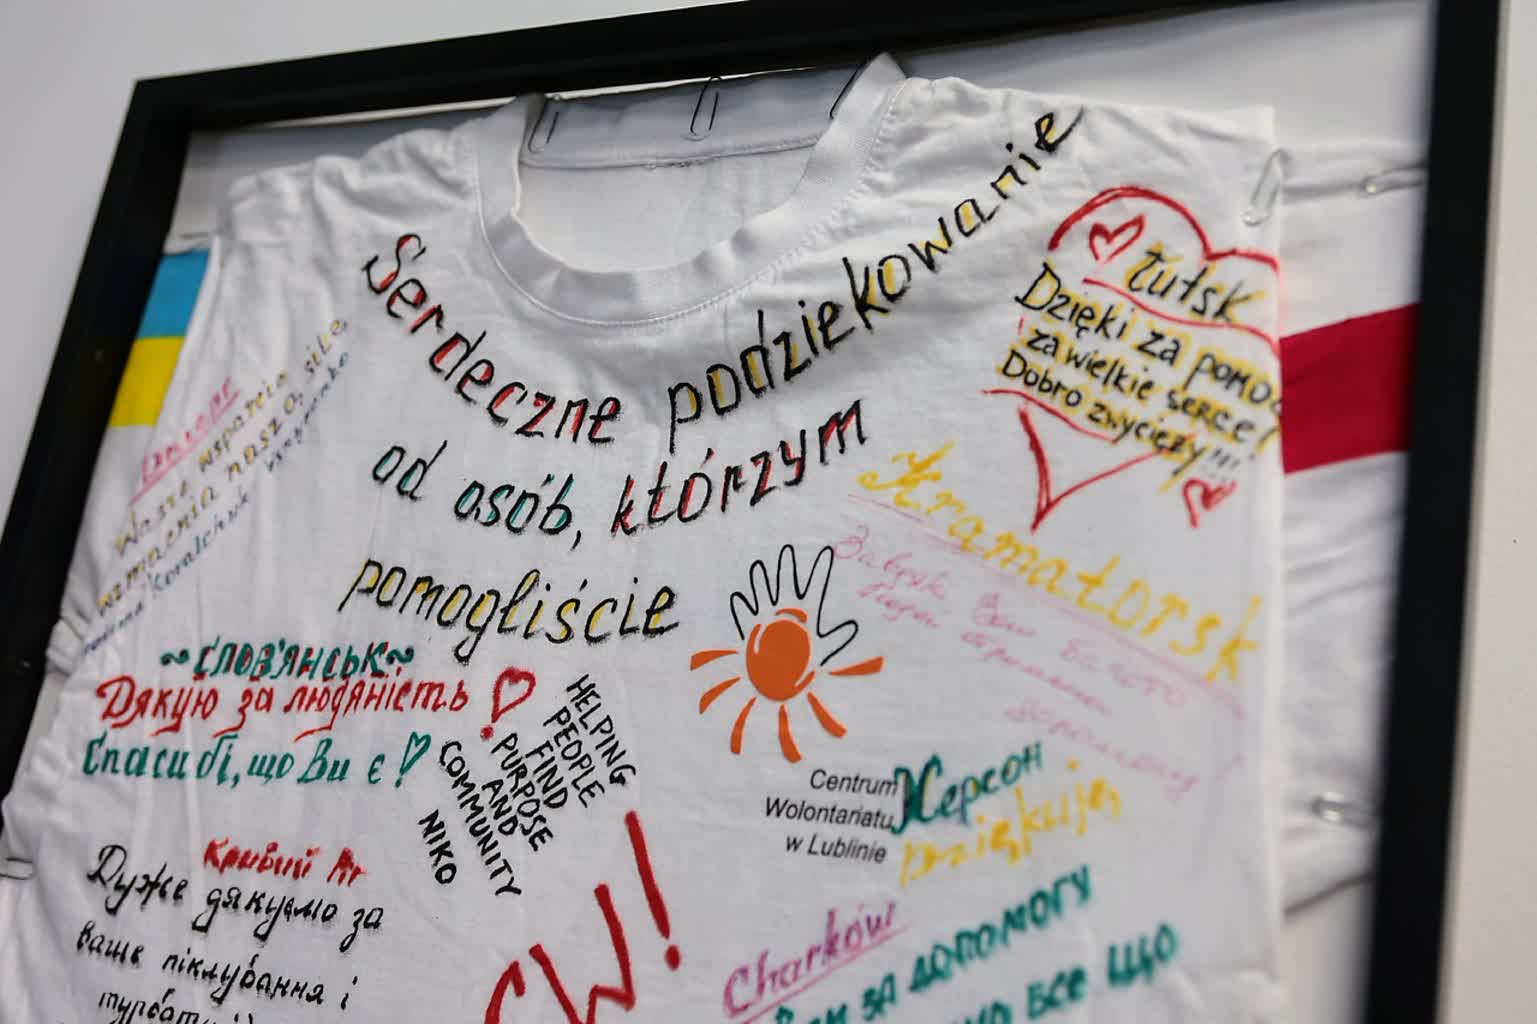 Serdeczne podziekowanie
od osób, którzym
pomogliście
Łutsk
Dzięki za pomoc
za wielkie serce!
Dobro zwycięży!!!
Kramatorsk
Wasze wsparcie
wzmacnia nasz
Kovalchuk
~Слов'янськ~
Дякую за людяність
Спасибі, що Ви є!
HELPING
PEOPLE
FIND
PURPOSE
AND
COMMUNITY
NIKO
Centrum
Wolontariatu
w Lublinie
Херсон
Dziękuję
Кривий Ріг
Дуже дякуємо за
ваше піклування і
CW!
Charków
за допомогу
все що